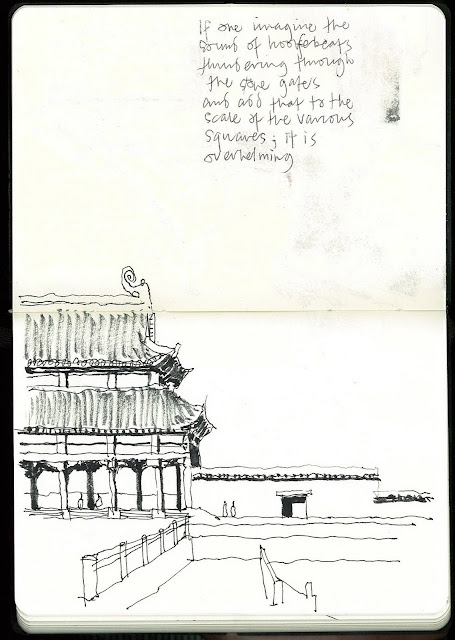 If one imagine the
sound of hoofebeats
thundering through
the stone gates
and add that to the
scale of the various
squares; it is
overhelming